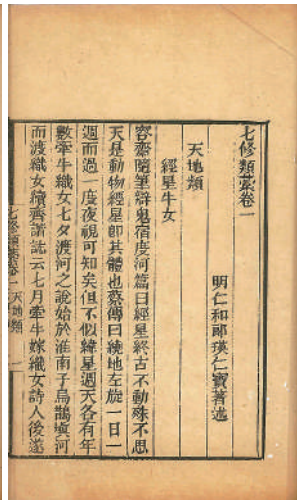 七修類藁卷一
明仁和郎瑛仁寶著述
天地類
經星牛女
容齋隨筆辯鬼宿度河篇曰經星終古不動殊不思
天是動物經星即其體也蔡傳曰繞地左旋一日一
週而過一度夜視可知矣但不似緯星週天各有年
數牽牛織女七夕渡河之說始於淮南子烏鵲塡河
而渡織女續齊諧誌云七月牽牛嫁織女詩人後遂
七修類藁卷一 天地類 一